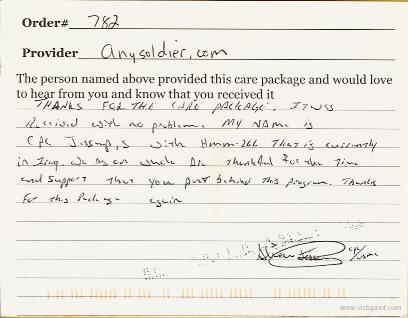 Order# 782
Provider anysoldier.com
The person named above provided this care package and would love
to hear from you and know that you received it
THANKS FOR THE CARE PACKAGE, IT WAS
Received with no problem. MY NAME is
CPL Jessup, S with Hmm-266 THAT is currently
in Iraq. We as an whole are thankful for the Time
and Support That you put behind this program. Thanks
For this Package again
CPL/USMC
www.vistaprint.com